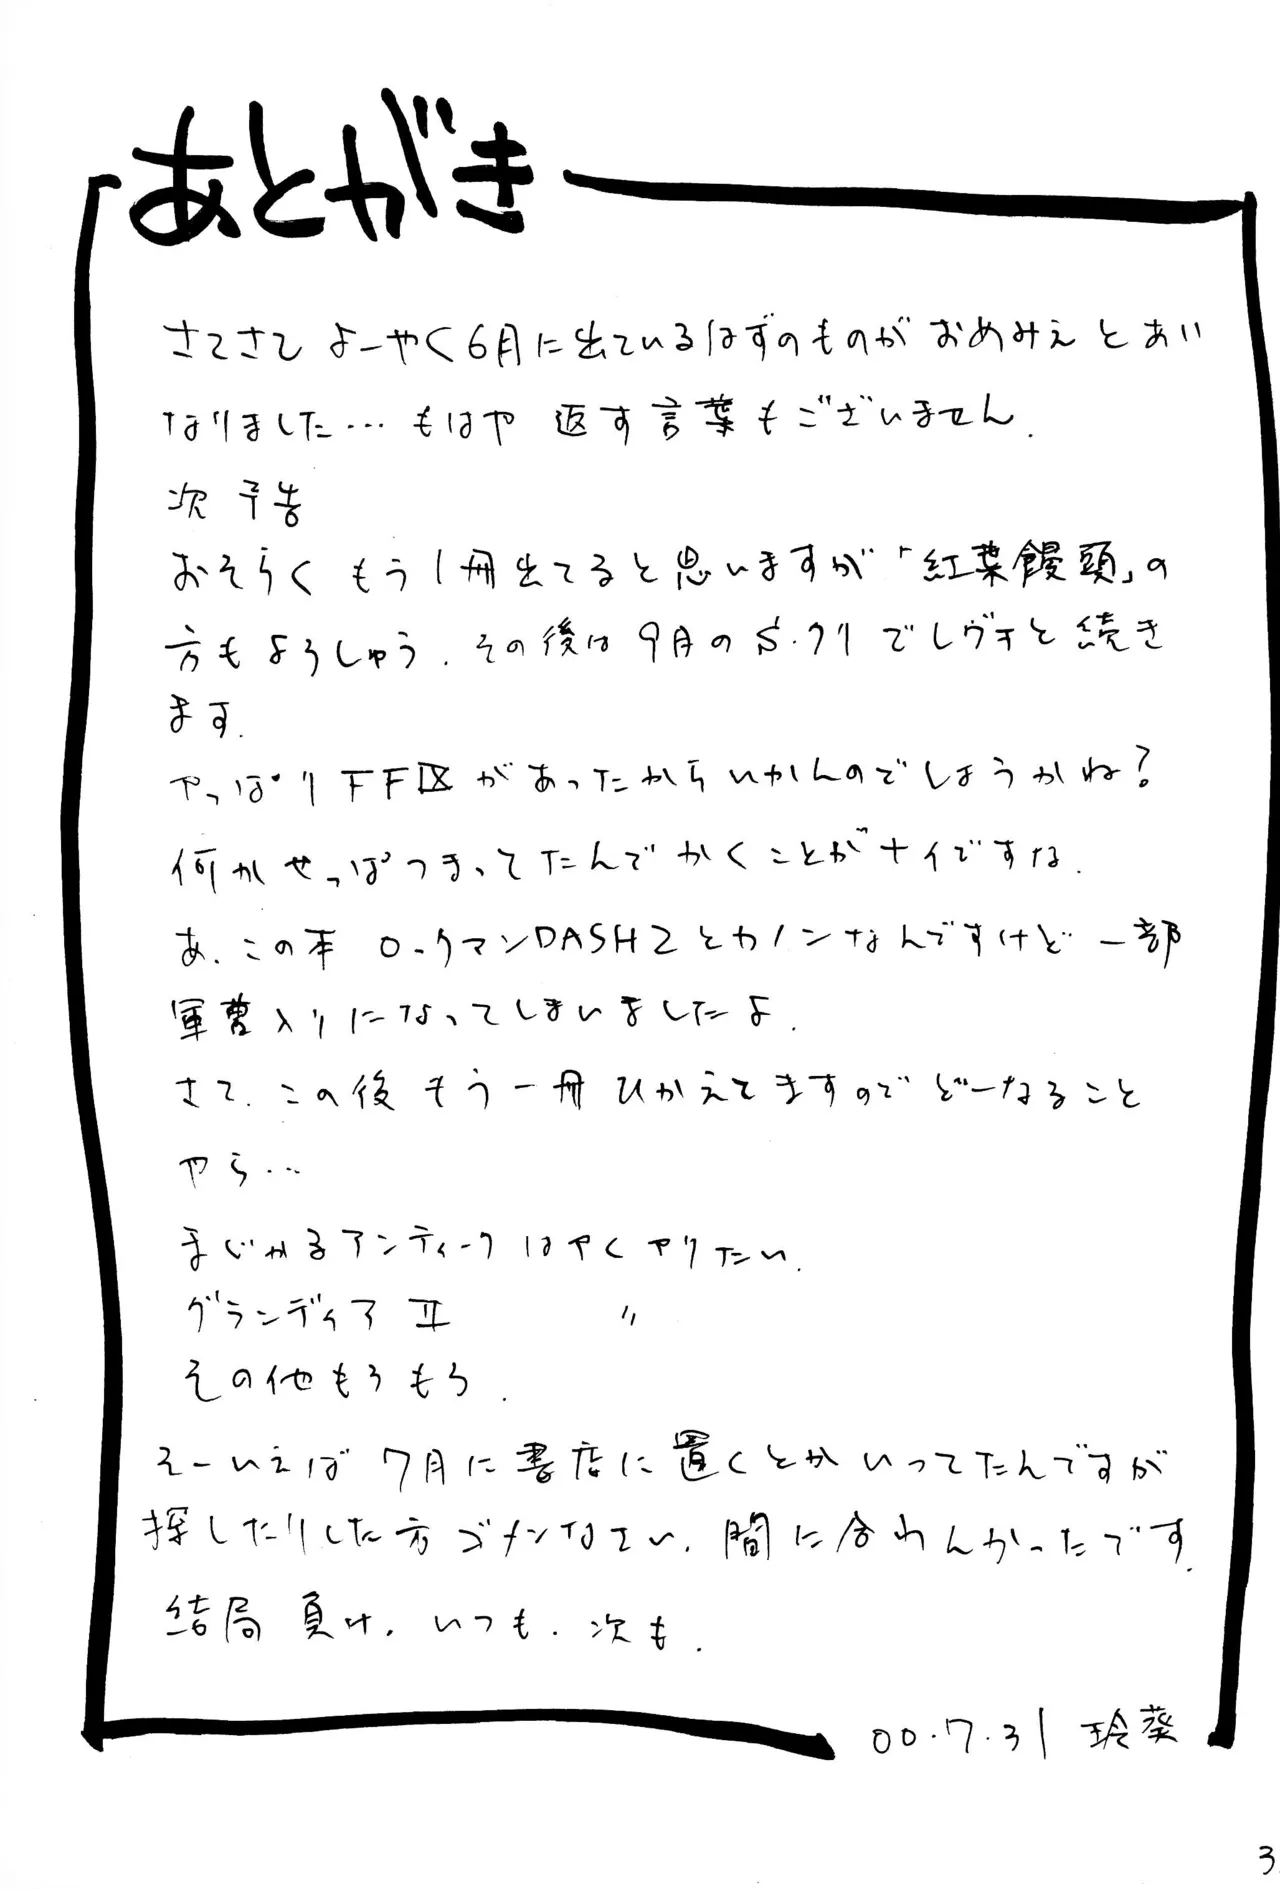 あとがき
さてさて よーやく6月に出ているはずのものが おめみえ とあい
なりました… もはや 返す言葉もございません.
次 予告
おそらく もう1冊出てると思いますが「紅葉饅頭」の
方もよろしゅう. その後は 9月のS.クリでレヴォと続き
ます.
やっぱりFFⅨがあったからいかんのでしょうかね?
何かせっぱつまってたんでかくことがナイですな.
あ. この本 ロックマンDASH2とカノンなんですけど 一部
軍曹入りになってしまいましたよ.
さて. この後 もう一冊 ひかえてますのでどーなること
やら…
まじかるアンティーク はやくやりたい.
グランディア Ⅱ 〃
その他もろもろ.
そーいえば 7月に書店に置くとかいってたんですが
探したりした方ゴメンなさい. 間に合わんかったです.
結局 負け. いつも. 次も.
00.7.31 玲葵
3